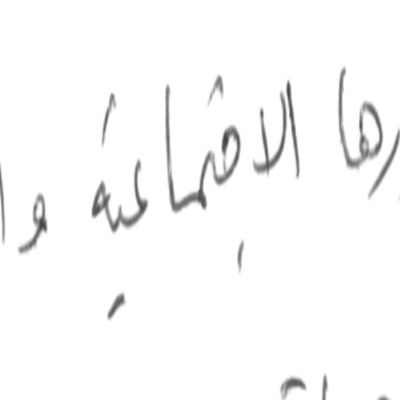 رها الاجتماعية و ا